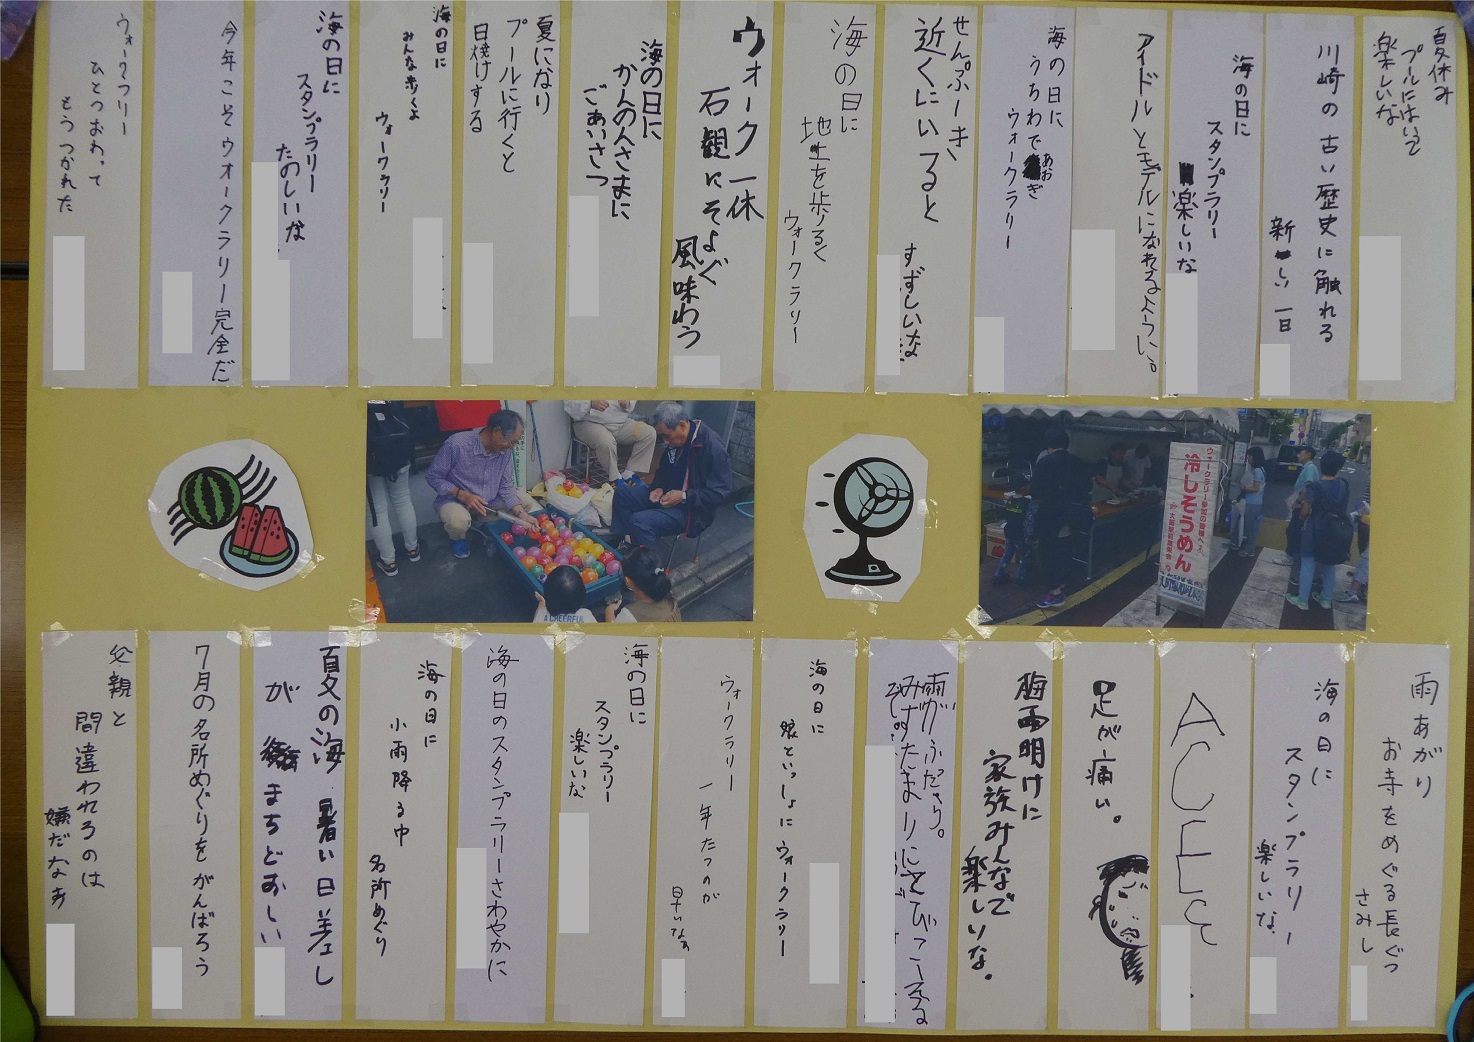 夏休み
プルにはいって
楽しいな
川崎の古い歴史に触れる
新しい一日
海の日に
スタンプラリー
楽しいな
アイドルとモデルになれるように。
海の日に
うちわであおぎ
ウォークラリー
せんぷーき
近くにいると
すずしいな
海の日に
地土を歩るく
ウォークラリー
ウォーク一休
石観にそよぐ
風味わう
海の日に
かんの人さまに
ごあいさつ
夏になり
プールに行くと
日焼けする
海の日に
みんな歩くよ
ウォークラリー
海の日に
スタンプラリー
たのしいな
今年こそウォークラリー完全だ
ウォークラリー
ひとつおわって
もうつかれた
ウォークラリー参加の皆様へ
冷しそうめん
A CHEERFUL
雨あがり
お寺をめぐる長ぐつ
さみし
海の日に
スタンプラリー
楽しいな
足が痛い。
梅雨明けに
家族みんなで
楽しいな。
雨がふださり。
みずたまりにとびこえる
海の日に
娘といっしょにウォークラリー
ウォークラリー
一年たつのが
早いなぁ
海の日に
スタンプラリー
楽しいな
海の日のスタンプラリーさわやかに
海の日に
小雨降る中
名所めぐり
夏の海暑い日差し
がまちどおしい
7月の名所めぐりをがんばろう
父親と
間違われるのは
嫌だなぁ